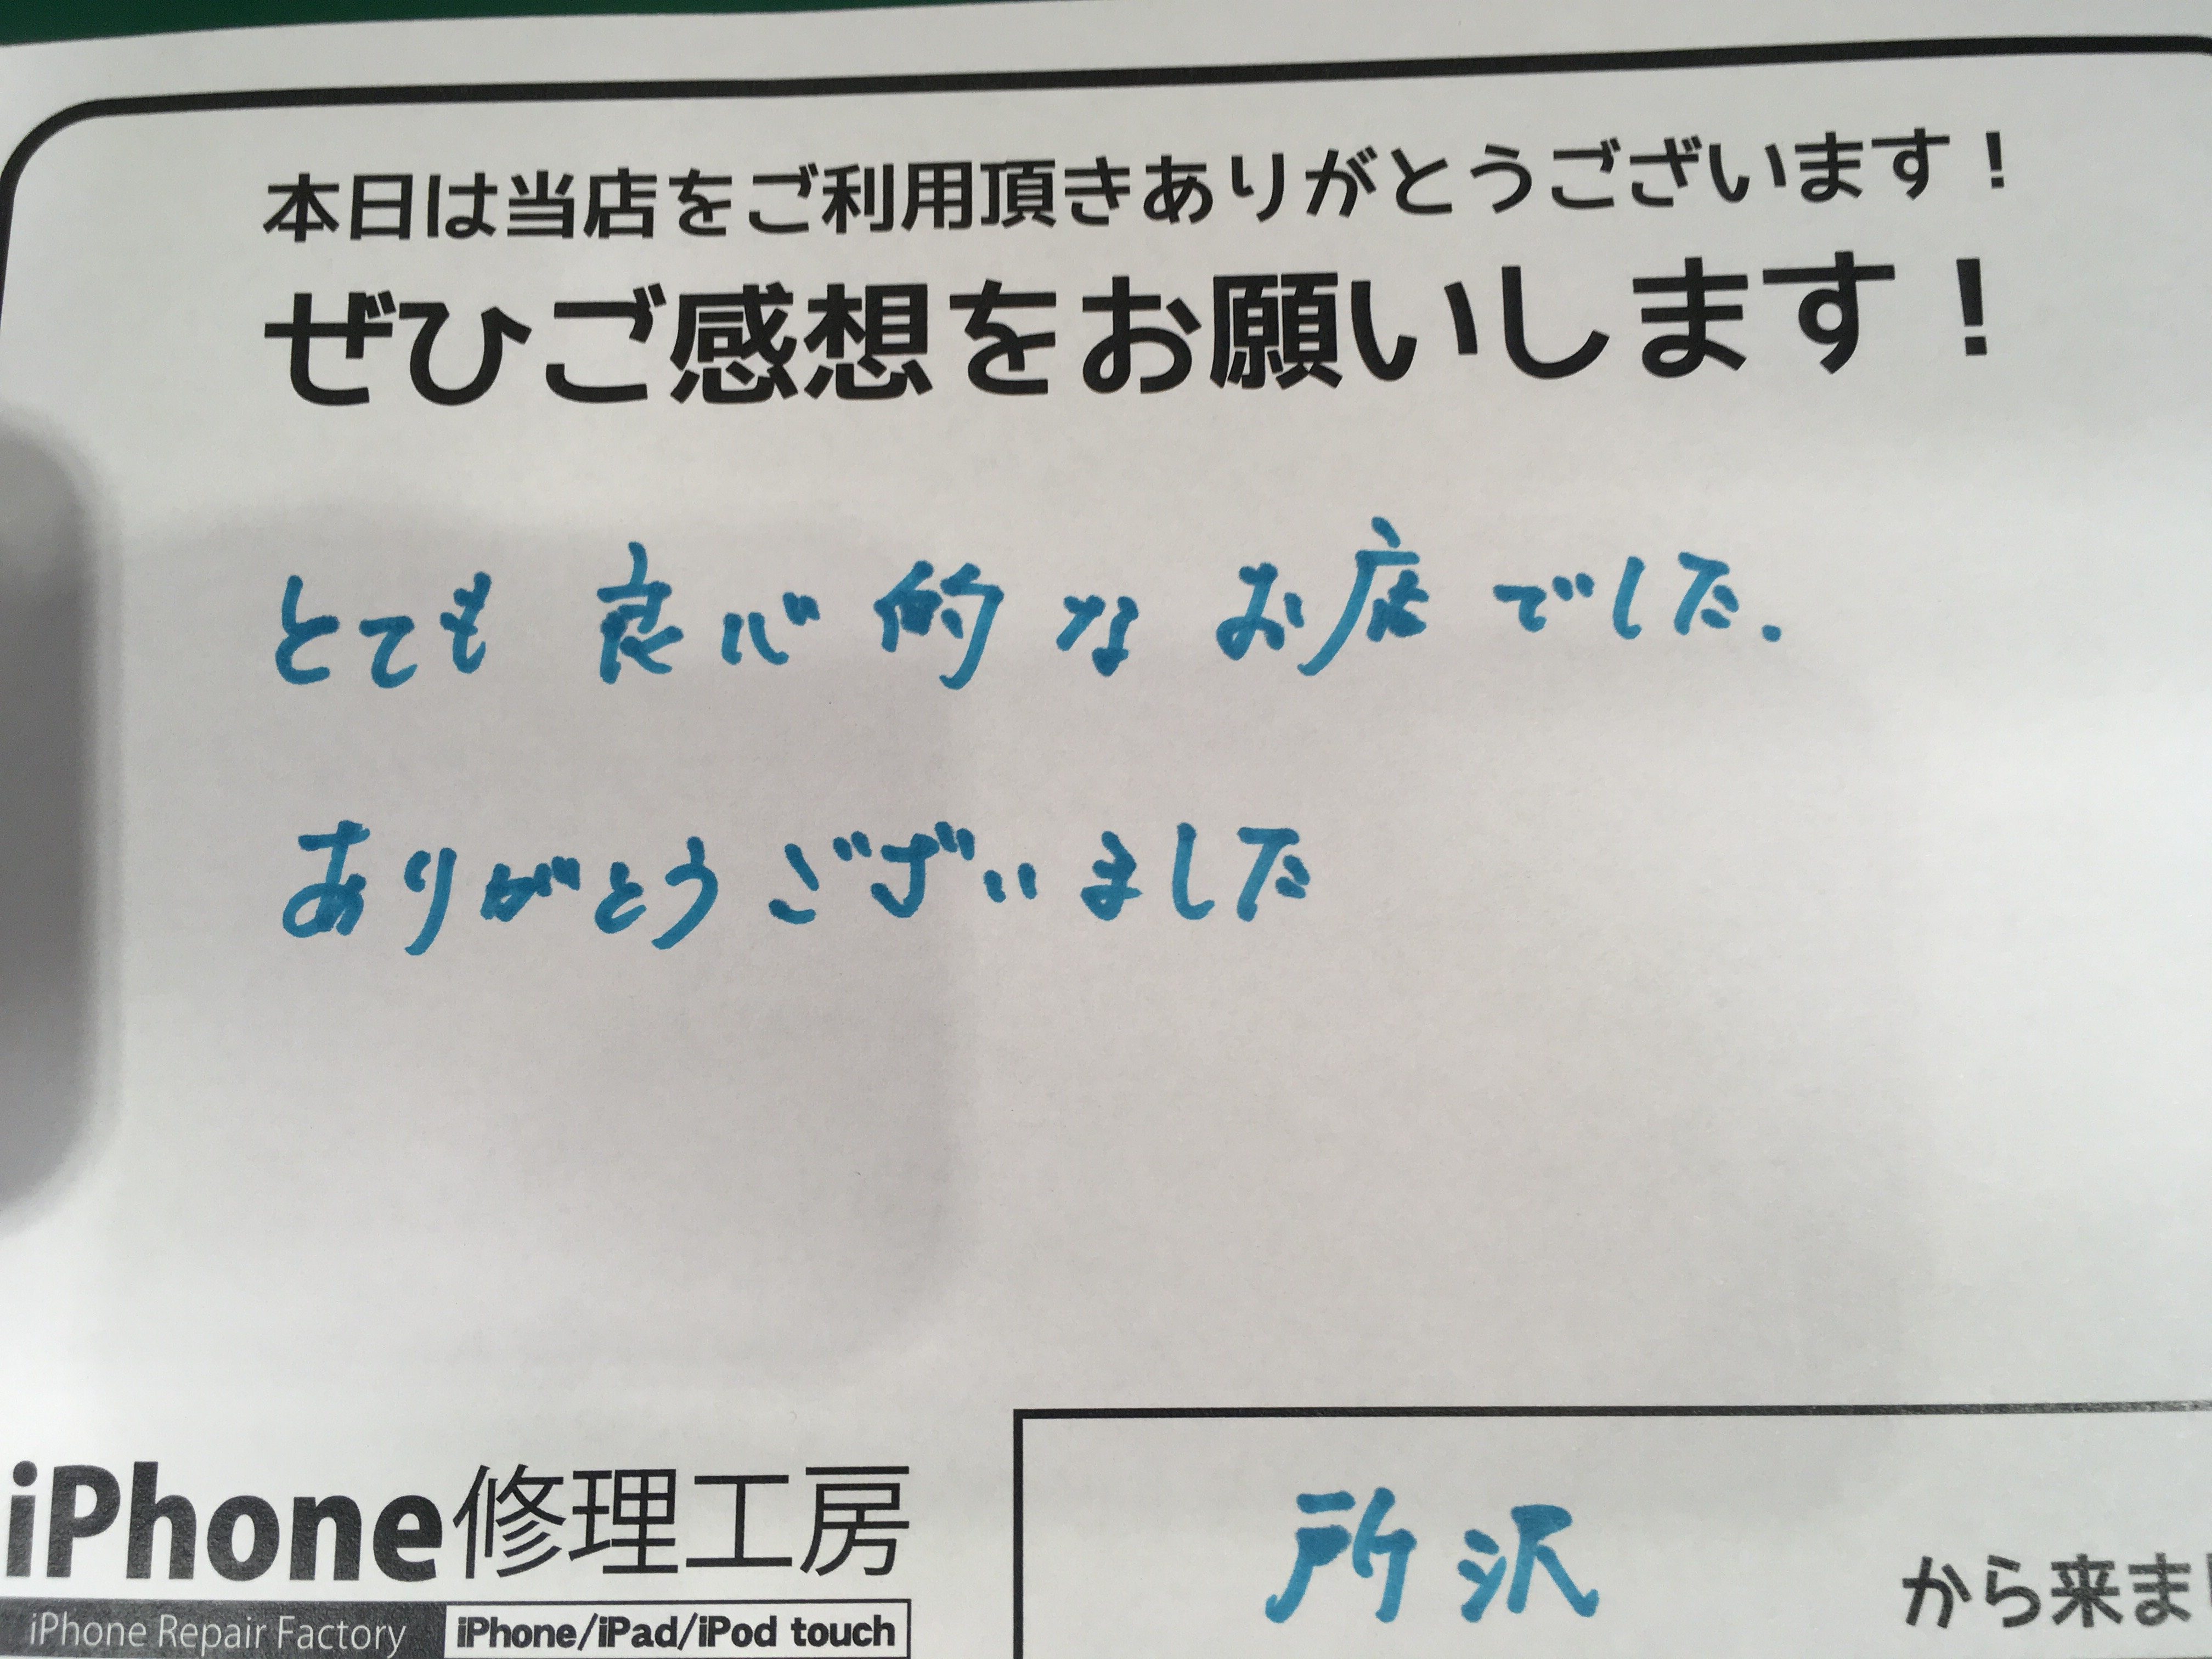 本日は当店をご利用頂きありがとうございます！
ぜひご感想をお願いします！
とても 良心的な お店でした.
ありがとうございました
iPhone修理工房
iPhone Repair Factory iPhone/iPad/iPod touch
所沢 から来ま